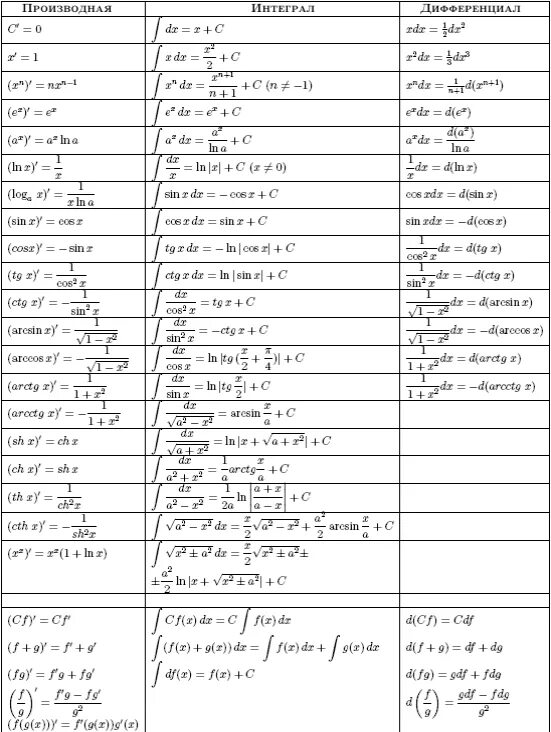 Производная Интеграл Дифференциал
C′ = 0 ∫ dx = x + C xdx = ½dx²
x′ = 1 ∫ x dx = x²/2 + C x²dx = ⅓dx³
(xⁿ)′ = nxⁿ⁻¹ ∫ xⁿ dx = xⁿ⁺¹/(n + 1) + C (n ≠ −1) xⁿdx = 1/(n+1) d(xⁿ⁺¹)
(eˣ)′ = eˣ ∫ eˣ dx = eˣ + C eˣdx = d(eˣ)
(aˣ)′ = aˣ ln a ∫ aˣ dx = aˣ/ln a + C aˣdx = d(aˣ)/ln a
(ln x)′ = 1/x ∫ dx/x = ln |x| + C (x ≠ 0) 1/x dx = d(ln x)
(logₐ x)′ = 1/(x ln a) ∫ sin x dx = − cos x + C cos xdx = d(sin x)
(sin x)′ = cos x ∫ cos x dx = sin x + C sin xdx = −d(cos x)
(cosx)′ = − sin x ∫ tg x dx = − ln | cos x| + C 1/cos² x dx = d(tg x)
(tg x)′ = 1/cos² x ∫ ctg x dx = ln | sin x| + C 1/sin² x dx = −d(ctg x)
(ctg x)′ = −1/sin² x ∫ dx/cos² x = tg x + C 1/√(1 − x²) dx = d(arcsin x)
(arcsin x)′ = 1/√(1 − x²) ∫ dx/sin² x = −ctg x + C 1/√(1 − x²) dx = −d(arccos x)
(arccos x)′ = −1/√(1 − x²) ∫ dx/cos x = ln |tg (x/2 + π/4)| + C 1/(1 + x²) dx = d(arctg x)
(arctg x)′ = 1/(1 + x²) ∫ dx/sin x = ln |tg x/2| + C 1/(1 + x²) dx = −d(arcctg x)
(arcctg x)′ = −1/(1 + x²) ∫ dx/√(a² − x²) = arcsin x/a + C
(sh x)′ = ch x ∫ dx/√(a + x²) = ln |x + √(a + x²)| + C
(ch x)′ = sh x ∫ dx/(a² + x²) = 1/a arctg x/a + C
(th x)′ = 1/ch²x ∫ dx/(a² − x²) = 1/2a ln |(a + x)/(a − x)| + C
(cth x)′ = −1/sh²x ∫ √(a² − x²) dx = x/2 √(a² − x²) + a²/2 arcsin x/a + C
(xˣ)′ = xˣ(1 + ln x) ∫ √(x² ± a²) dx = x/2 √(x² ± a²) ±
± a²/2 ln |x + √(x² ± a²)| + C
(Cf)′ = Cf′ ∫ Cf(x) dx = C ∫ f(x) dx d(Cf) = Cdf
(f + g)′ = f′ + g′ ∫ (f(x) + g(x)) dx = ∫ f(x) dx + ∫ g(x) dx d(f + g) = df + dg
(fg)′ = f′g + fg′ ∫ df(x) = f(x) + C d(fg) = gdf + fdg
(f/g)′ = (f′g − fg′)/g² d(f/g) = (gdf − fdg)/g²
(f(g(x)))′ = f′(g(x))g′(x)